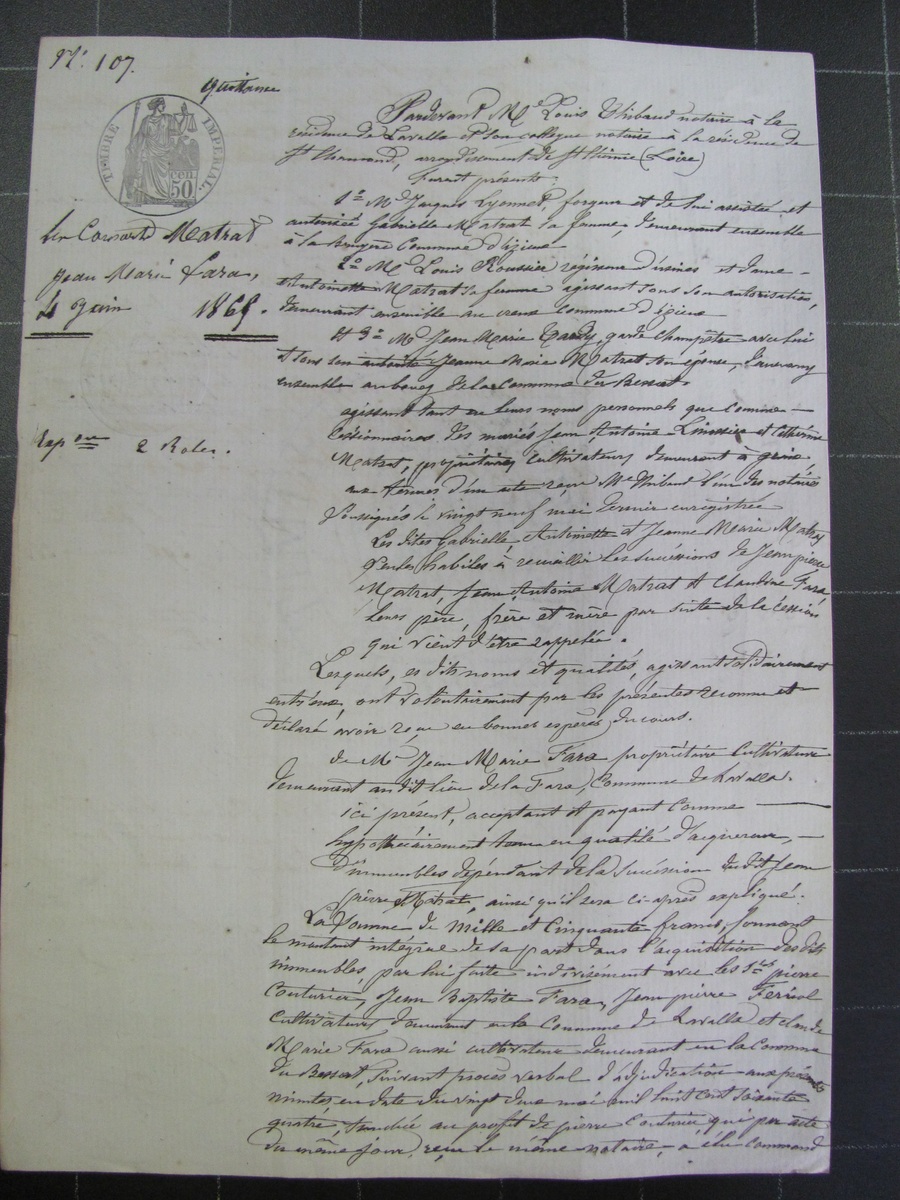 N.° 107.
Quittance
TIMBRE IMPÉRIAL
50 CEN
Les Consorts Matrat
Jean Marie Fara,
4 juin 1865.
2 Roles.
Pardevant M.e Louis Thibaud notaire à la
résidence de Lavalla et son collègue notaire à la résidence de
St Chamond, arrondissement de St Etienne (Loire)
Furent présents
1.° Mr Jacques Lyonnet, forgeur et de lui assistée et
autorisée Gabrielle Matrat sa femme, demeurant ensemble
à la Bruyere Commune d'izieux
2.° Mr Louis Roussier régisseur d'usines et dame
Antoinette Matrat sa femme agissant sous son autorisation,
demeurant ensemble au creux commune d'izieux
Et 3.° Mr Jean Marie Tardy, garde champêtre avec lui
et sous son autorité Jeanne Marie Matrat son épouse, demeurant
ensemble au bourg de la Commune du Bessat.
agissant tant en leurs noms personnels que comme
Cessionnaires des mariés Jean Antoine et Catherine
Matrat, propriétaires cultivateurs demeurant à
aux termes d'un acte reçu Me Thibaud l'un des notaires
soussignés le vingt neuf mai dernier enregistré
Les dites Gabrielle Antoinette et Jeanne Marie Matrat
seules habiles à recueillir les successions de Jean pierre
Matrat, Jean Antoine Matrat et Claudine Fara,
leurs père, frère et mère par suite de la cession
qui vient d'être rappelée.
Lesquels, es dits noms et qualités, agissant solidairement
entr'eux, ont volontairement par les présentes reconnu et
déclaré avoir reçu en bonnes espèces du cours.
de Mr Jean Marie Fara propriétaire cultivateur
demeurant au dit lieu de la Fara, Commune de Lavalla.
ici présent, acceptant et payant comme
hypothécairement tenu en qualité d'acquereur,
d'immeubles dépendant de la succession du dit Jean
pierre Matrat, ainsi qu'il sera ci-après expliqué.
La somme de Mille et Cinquante francs, formant
le montant intégral de sa part dans l'acquisition des dits
immeubles par lui faite indivisément avec les Srs pierre
Couturier, Jean Baptiste Fara, Jean pierre Ferriol
cultivateurs, demeurant en la Commune de Lavalla et claude
Marie Fara aussi cultivateur demeurant en la Commune
du Bessat, suivant procès verbal d'adjudication aux présentes
minutes en date du vingt deux mai mil huit cent soixante
quatre, tranchée au profit de pierre Couturier qui par acte
du même jour, reçu le même notaire, a élu command